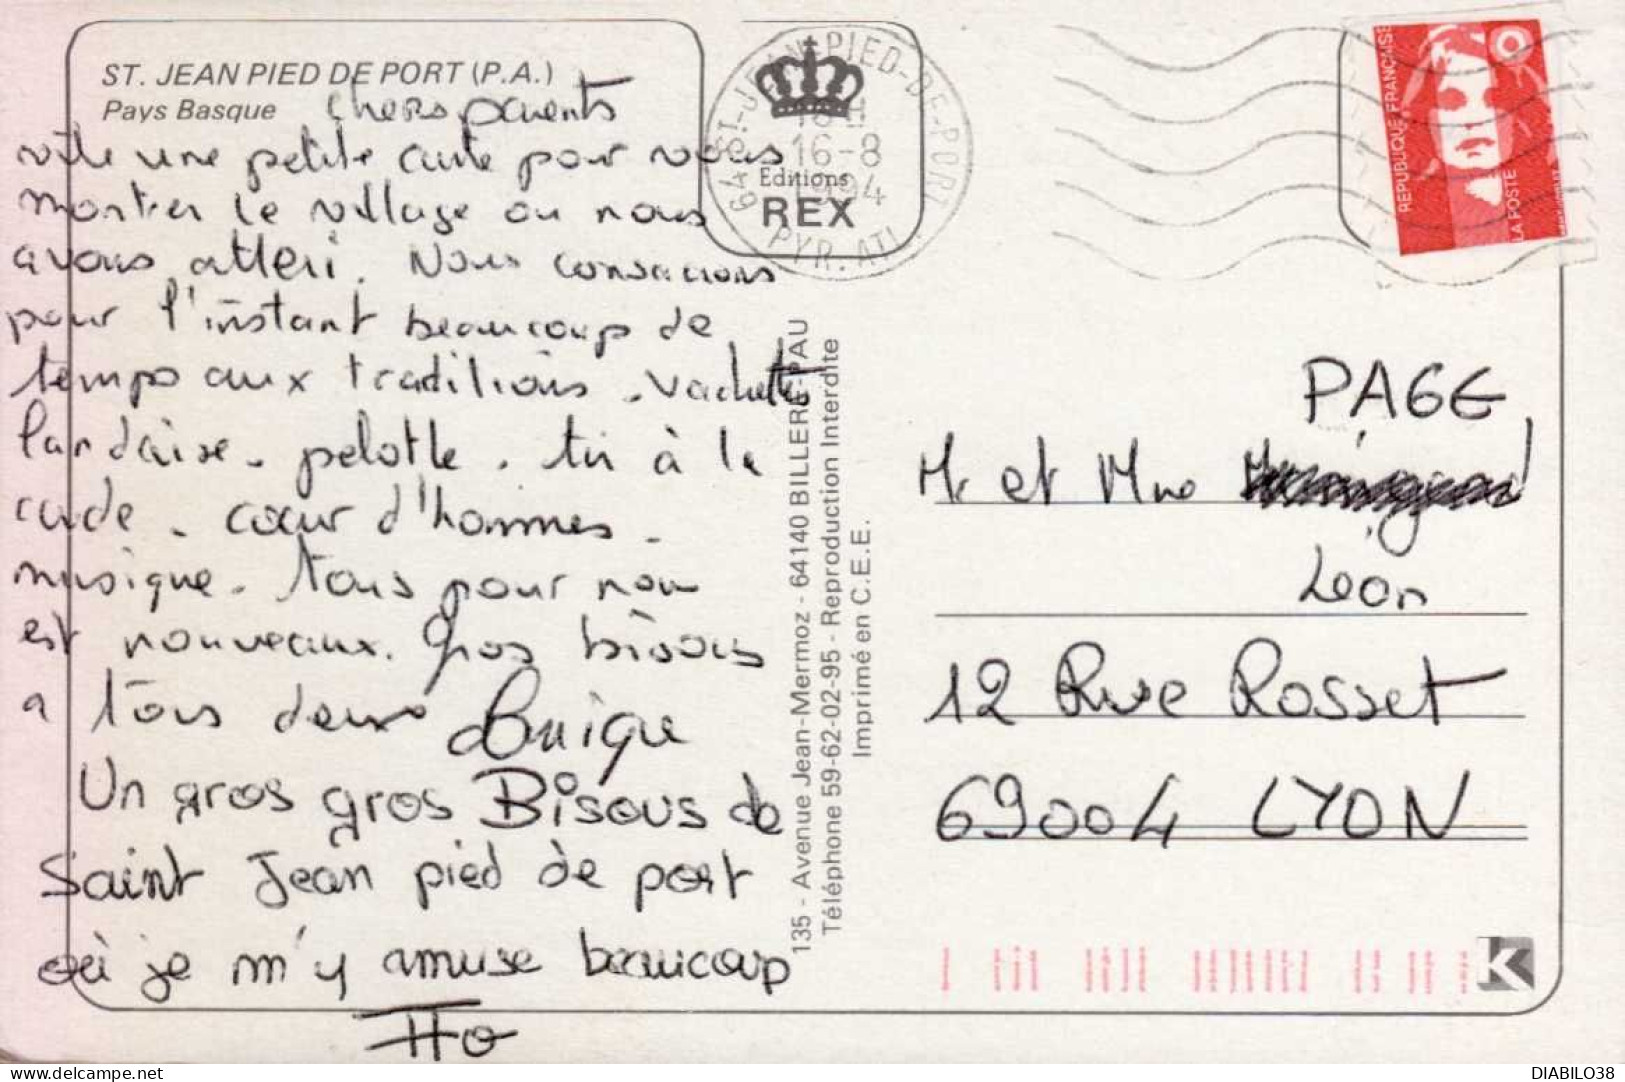 ST. JEAN PIED DE PORT (P.A.)
Pays Basque
Chers parents
vite une petite carte pour vous
montrer le village ou nous
avons atteri. Nous consacrons
pour l'instant beaucoup de
temps aux traditions. Vachettes
landaise. pelotte. tir à la
corde. cœur d'hommes.
musique. Tous pour nous
est nouveaux. Gros bisous
a tous deux
Un gros gros Bisous de
Saint Jean pied de port
où je m'y amuse beaucoup
64 ST-JEAN-PIED-DE-PORT
16-8
1994
PYR. ATL.
Editions
REX
135 - Avenue Jean-Mermoz - 64140 BILLERE-PAU
Téléphone 59-62-02-95 - Reproduction Interdite
Imprimé en C.E.E.
REPUBLIQUE FRANÇAISE
LA POSTE
PAGE
Mr et Mme
Léon
12 Rue Rosset
69004 LYON
K
https://www.delcampe.net
DIABILO38